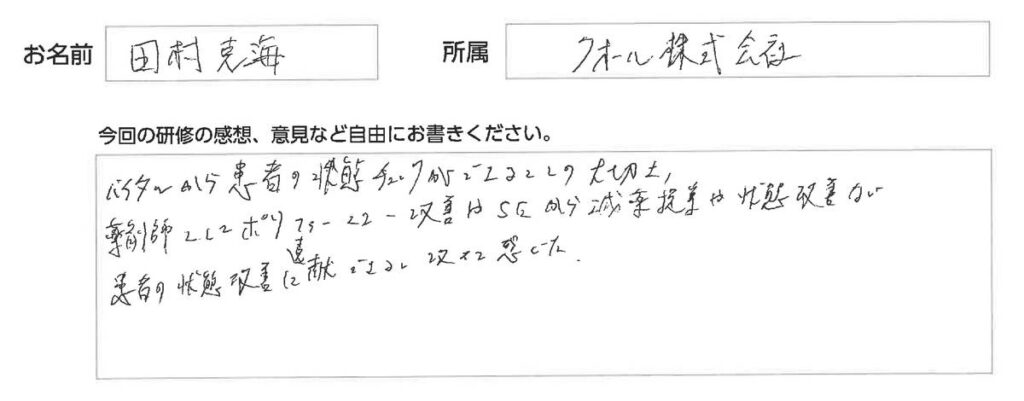 お名前 田村克海 所属 クオール株式会社
今回の研修の感想、意見など自由にお書きください。
バイタルから患者の状態チェックができることの大切さ,
薬剤師としてポリファーマシー改善やSEから減薬提案や状態改善ない
患者の状態改善に貢献できると改めて感じた.